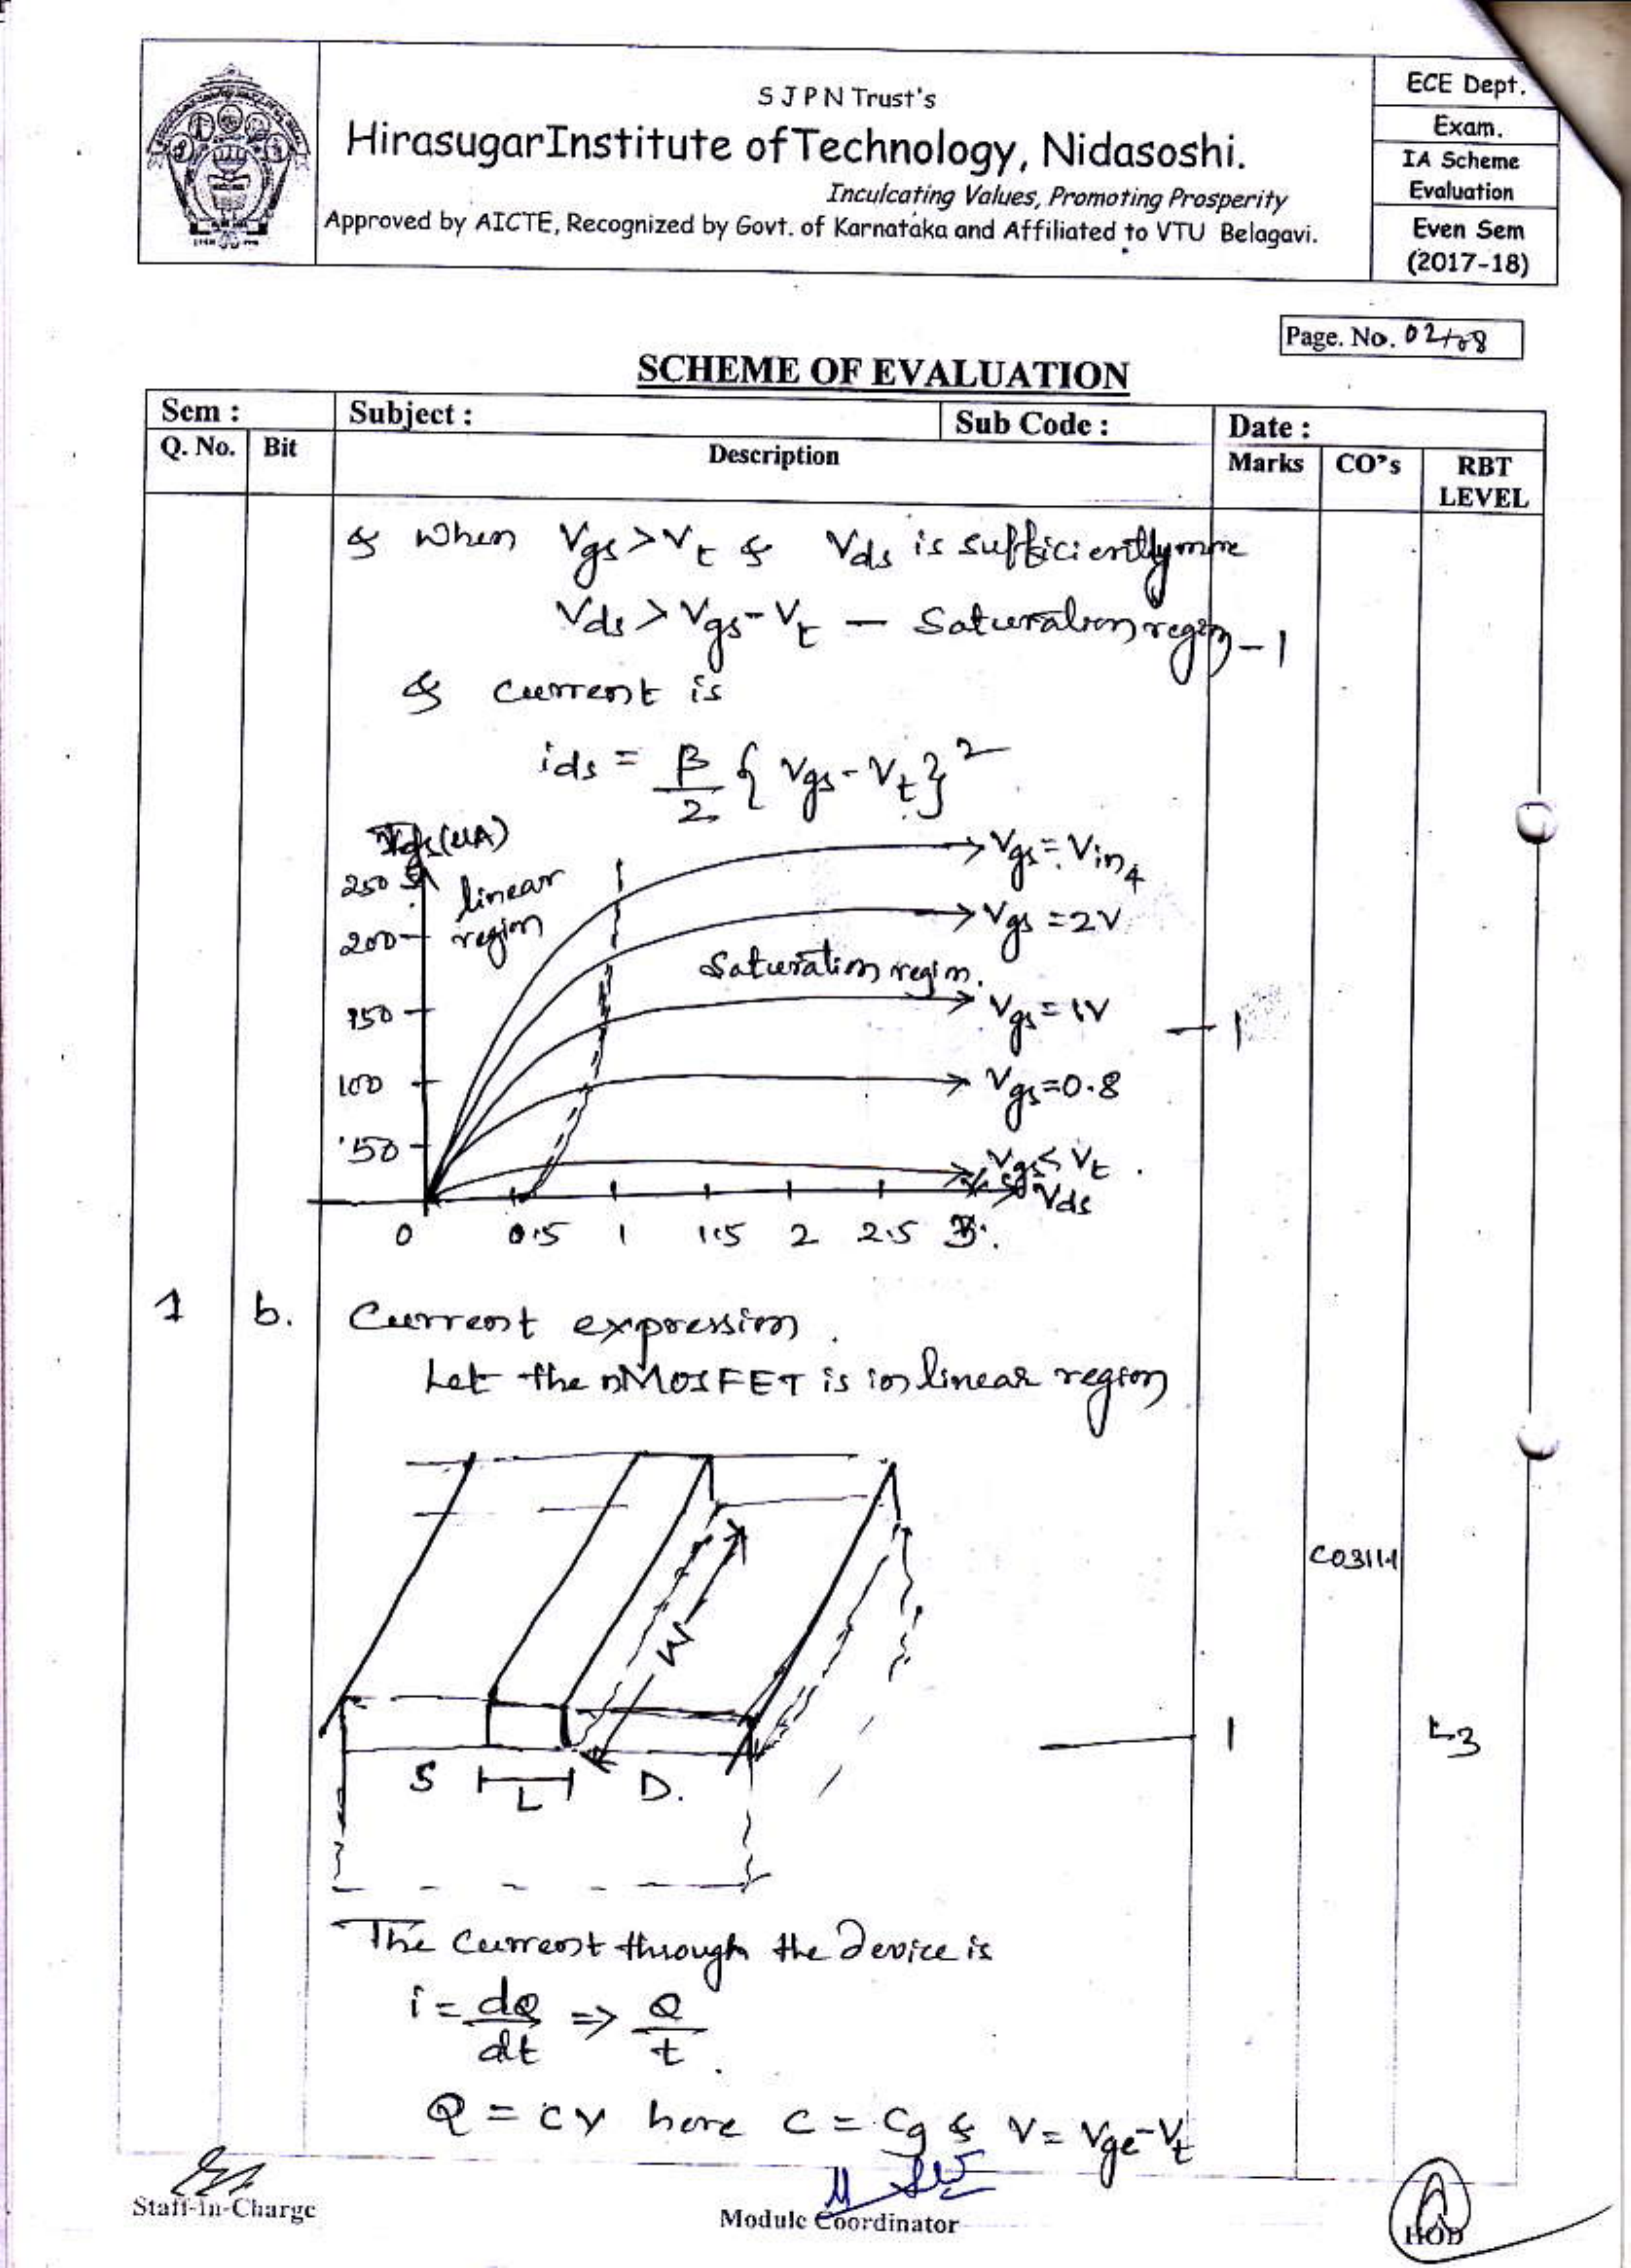 S J P N Trust's
HirasugarInstitute of Technology, Nidasoshi.
Inculcating Values, Promoting Prosperity
Approved by AICTE, Recognized by Govt. of Karnataka and Affiliated to VTU Belagavi.
ECE Dept.
Exam.
IA Scheme
Evaluation
Even Sem
(2017-18)
Page. No. 02/08
SCHEME OF EVALUATION
Sem : Subject : Sub Code : Date :
Q. No. Bit Description Marks CO's RBT LEVEL
& When Vgs > Vt & Vds is sufficiently more
Vds > Vgs - Vt — Saturation region - 1
& current is
ids = β/2 { Vgs - Vt }²
Ids (uA)
250
200
150
100
50
linear
region
Saturation region.
Vgs = Vin4
Vgs = 2V
Vgs = 1V
Vgs = 0.8
Vgs < Vt
Vds
0 0.5 1 1.5 2 2.5 3
— 1
1 b. Current expression.
Let the nMOSFET is in linear region
W
S L D.
1
CO311.1
L3
The current through the device is
i = dQ/dt => Q/t.
Q = CV here C = Cg & V = Vgc - Vt
Staff-In-Charge
Module Coordinator
HOD